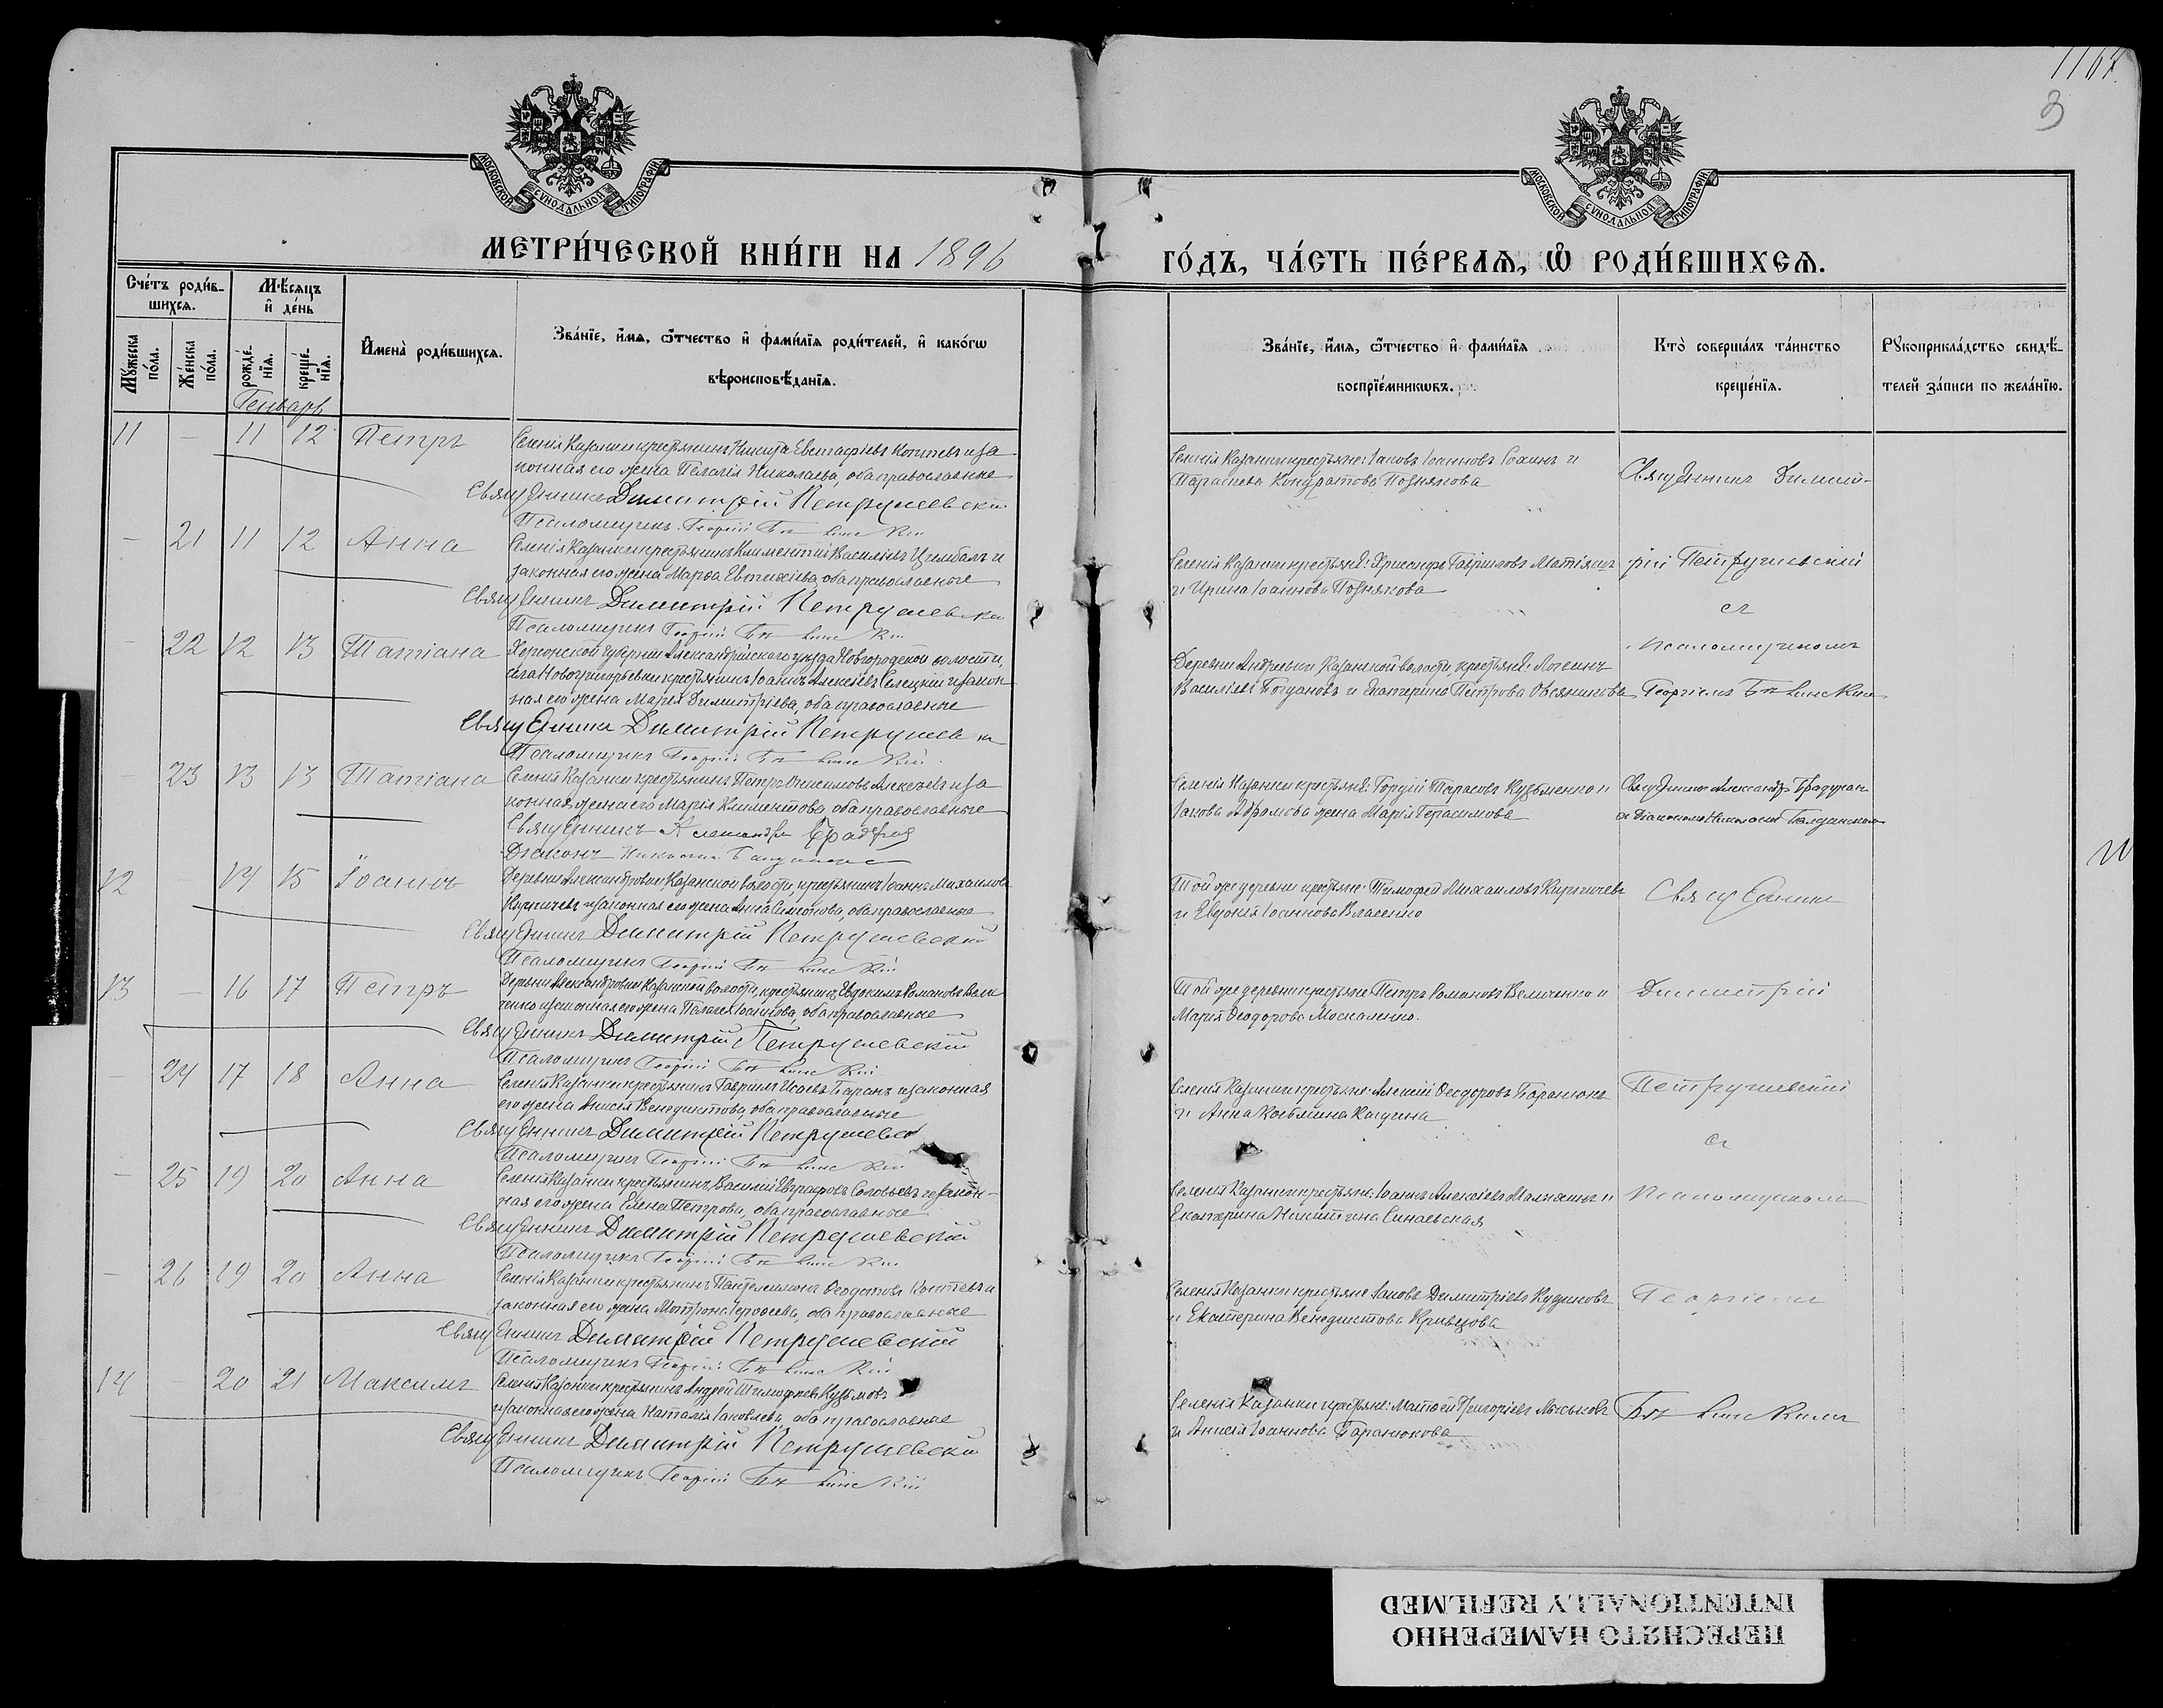 1167
3
МОСКОВСКОЙ СѴНОДАЛЬНОЙ ТИПОГРАФІИ
МОСКОВСКОЙ СѴНОДАЛЬНОЙ ТИПОГРАФІИ
МЕТРИ́ЧЕСКОЙ КНИ́ГИ НА 1896
ГО́ДЪ, ЧА́СТЬ ПЕ́РВАѦ, Ѡ҆ РОДИ́ВШИХСѦ.
Сче́тъ роди́в-
шихсѧ.
Мѣ́сяцъ
и҆ де́нь
Мꙋ́жеска
по́ла.
Же́нска
по́ла.
рожде́-
нїѧ.
креще́-
нїѧ.
Генварь
И҆мена̀ роди́вшихсѧ.
Зва́нїе, и҆́мѧ, ѻ҆́тчество и҆ фами́лїѧ роди́телей, и҆ како́гѡ
вѣроисповѣ́данїѧ.
Зва́нїе, и҆́мѧ, ѻ҆́тчество и҆ фами́лїѧ
воспрїе́мникѡвъ.
Кто̀ соверша́лъ та́инство
креще́нїѧ.
Рꙋкоприкла́дство свидѣ́-
телей за́писи по жела́нїю.
11 - 11 12 Петръ
Селенія Казанки крестьянинъ Никита Евстафіевъ и за
конная его жена Пелагія Николаева, оба православные
Священникъ Димитрій Петрушевскій
Псаломщикъ Георгій
Селенія Казанки крестьяне: Іаковъ Іоанновъ и
Параскева Кондратова Познякова
Священникъ Димит-
- 21 11 12 Анна
Селенія Казанки крестьянинъ Климентій Василіевъ Цымбалъ и
законная его жена Марѳа Евтихіева, оба православные
Священникъ Димитрій Петрушевскій
Псаломщикъ Георгій
Селенія Казанки крестьяне: Хрисанфъ Гавріиловъ
и Ирина Іоаннова Познякова
рій Петрушевскій
съ
- 22 12 13 Татіана
Херсонской губерніи Александрійскаго уѣзда Новгородской волости,
села Новогригорьевки крестьянинъ Іоаннъ Алексіевъ Селецкій и закон
ная его жена Марія Димитріева, оба православные
Священникъ Димитрій Петрушев
Псаломщикъ Георгій
Деревни Андреевки Казанской волости, крестьяне: Логгинъ
Василіевъ Богдановъ и Екатерина Петрова Овсянникова
псаломщикомъ
Георгіемъ
- 23 13 13 Татіана
Селенія Казанки крестьянинъ Петръ Онисимовъ Алексѣевъ и за
конная жена его Марія Климентова, оба православные
Священникъ Александръ
Діаконъ Николай
Селенія Казанки крестьяне: Тарасовъ Кузьменко и
Іакова Абрамова жена Марія Герасимова
Священникъ Александръ
и діакономъ Николаемъ
12 - 14 15 Іоаннъ
Деревни Александровки Казанской волости, крестьянинъ Іоаннъ Михаиловъ
Кирпичевъ и законная его жена Анна Симонова, оба православные
Священникъ Димитрій Петрушевскій
Псаломщикъ Георгій
Той же деревни крестьяне: Тимофей Михаиловъ Кирпичевъ
и Евдокія Іоаннова Власенко
Священникъ
13 - 16 17 Петръ
Деревни Александровки Казанской волости, крестьянинъ Евдокимъ Романовъ Вели
ченко и законная его жена Пелагея Іоаннова, оба православные
Священникъ Димитрій Петрушевскій
Псаломщикъ Георгій
Той же деревни крестьяне Петръ Романовъ Величенко и
Марія Ѳеодорова Москаленко.
Димитрій
- 24 17 18 Анна
Селенія Казанки крестьянинъ Гавріилъ Исаевъ Таранъ и законная
его жена Анисія Венедиктова, оба православные
Священникъ Димитрій Петрушевс
Псаломщикъ Георгій
Селенія Казанки крестьяне: Алексій Ѳеодоровъ Таранюкъ
и Анна Косьмина
Петрушевскій
съ
- 25 19 20 Анна
Селенія Казанки крестьянинъ Василій Евграфовъ Соловьевъ и закон-
ная его жена Елена Петрова, оба православные
Священникъ Димитрій Петрушевскій
Псаломщикъ Георгій
Селенія Казанки крестьяне: Іоаннъ Алексіевъ и
Екатерина Никитина Синаевская
псаломщикомъ
- 26 19 20 Анна
Селенія Казанки крестьянинъ Пантелеимонъ Ѳеодотовъ и
законная его жена Матрона Іероѳеева, оба православные
Священникъ Димитрій Петрушевскій
Псаломщикъ Георгій
Селенія Казанки крестьяне Іаковъ Димитріевъ
и Екатерина Венедиктова Кривцова
Георгіемъ
14 - 20 21 Максимъ
Селенія Казанки крестьянинъ Андрей Тимофеевъ Кузьмовъ
и законная его жена Наталія Іаковлева, оба православные
Священникъ Димитрій Петрушевскій
Псаломщикъ Георгій
Селенія Казанки крестьяне: Матѳей Григоріевъ
и Анисія Іоаннова Таранюкова
ПЕРЕСНЯТО НАМЕРЕННО
INTENTIONALLY REFILMED